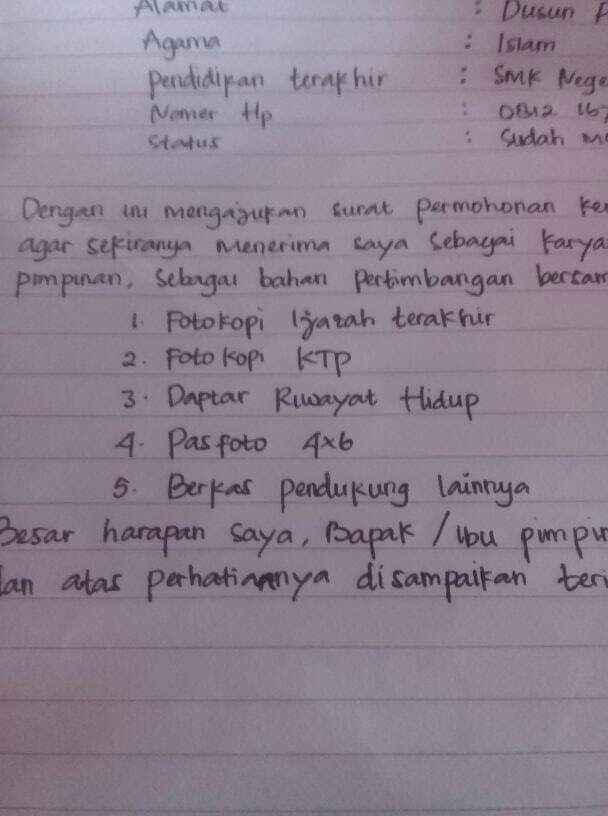 Alamat : Dusun
Agama : Islam
Pendidikan terakhir : SMK Nege
Nomer Hp : 0812 167
Status : Sudah me
Dengan ini mengajukan surat permohonan ker
agar sekiranya menerima saya sebagai karya
pimpinan, sebagai bahan pertimbangan bersam
1. Fotokopi Ijazah terakhir
2. Foto kopi KTP
3. Daptar Riwayat Hidup
4. Pas foto 4x6
5. Berkas pendukung lainnya
Besar harapan saya, Bapak / ibu pimpin
dan atas perhatiannya disampaikan teri